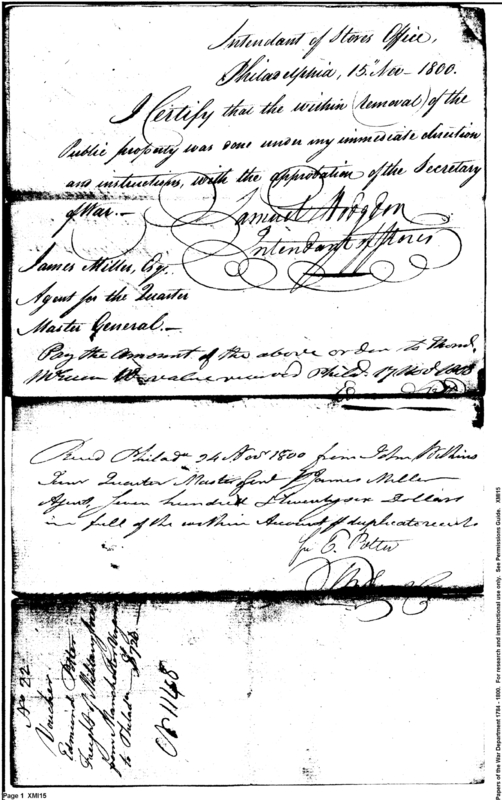 Intendant of Stores Office,
Philadelphia, 15" Nov- 1800.
I Certify that the within (removal) of the
Public property was done under my immediate direction
and instructions, with the approbation of the Secretary
of War.-
Samuel Hodgdon
Intendant of Stores
James Miller, Esq.
Agent for the Quarter
Master General.-
Pay the amount of the above order to
value received Philad. 17 Nov 1800
Philada 24 Novr 1800 from John Wilkins
Junr Quarter Master Genl James Miller
Agent, Seven hundred & twenty six Dollars
in full of the within Account duplicate
E. Potter
No 22
Voucher
Edmund Potter
freight of Military
from Manchester Virginia
to Philada $726
No 1148
Page 1 XMI15
Papers of the War Department 1784 - 1800. For research and instructional use only. See Permissions Guide. XMI15